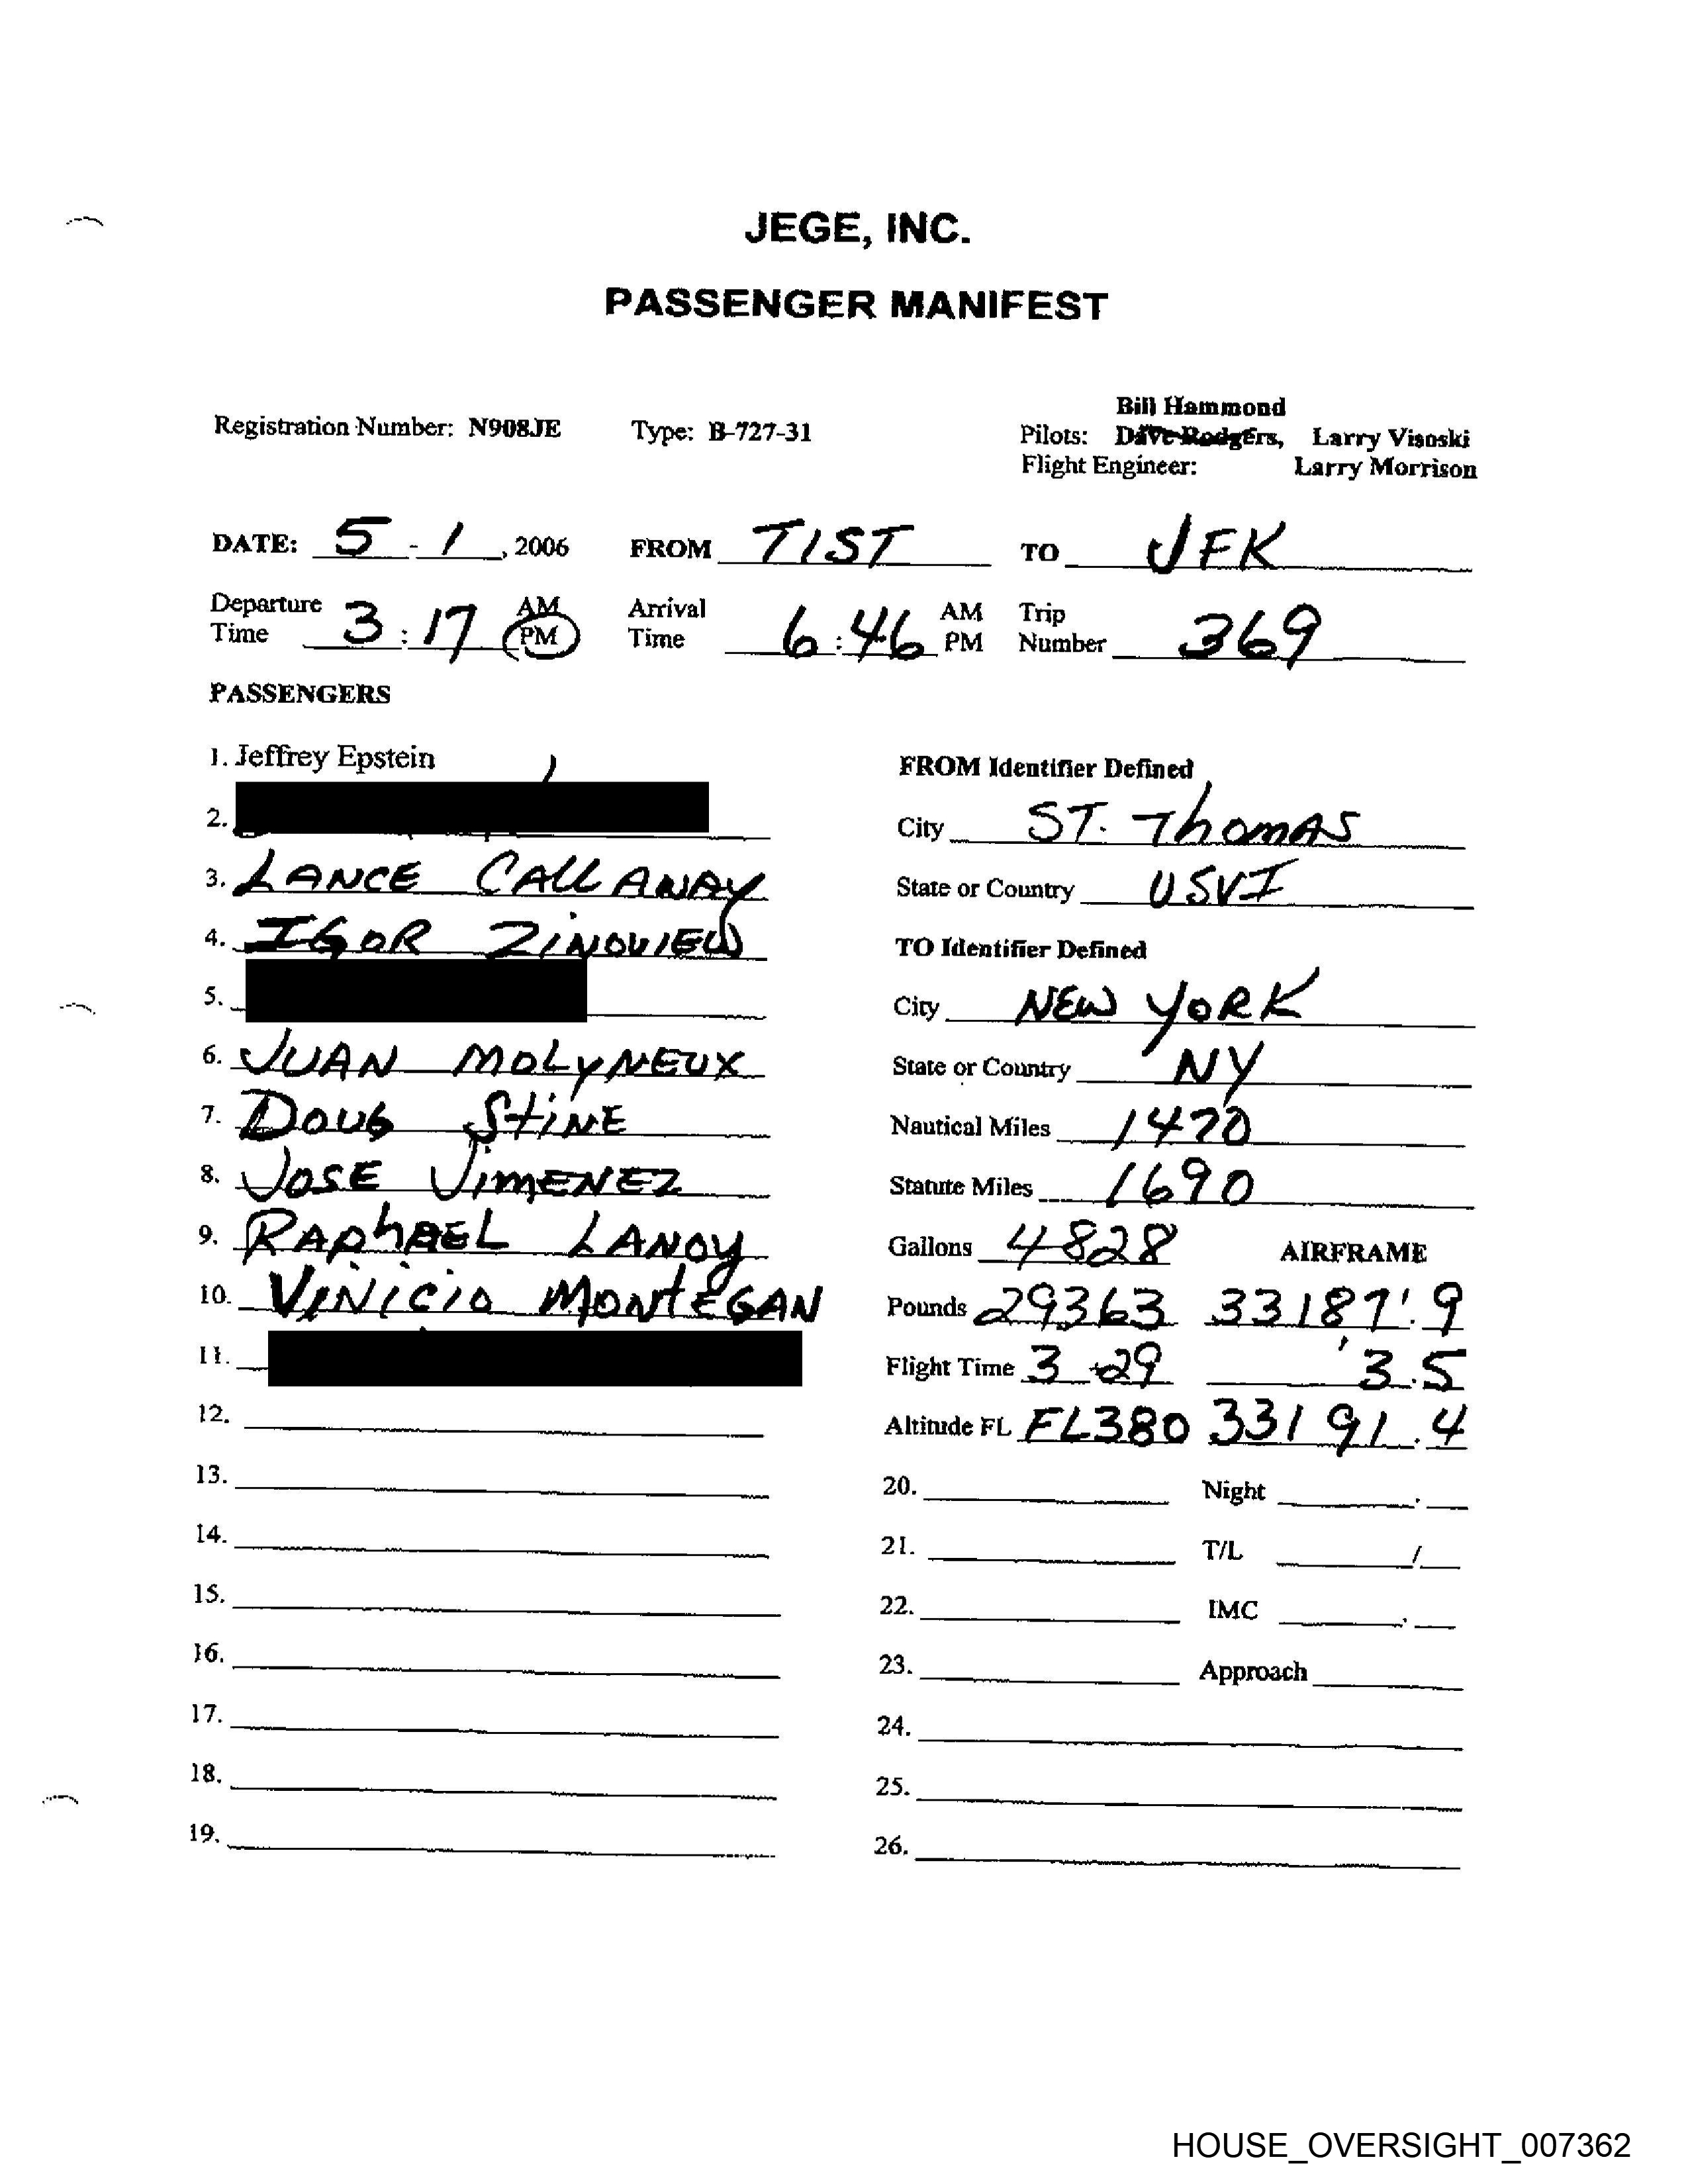 JEGE, INC.
PASSENGER MANIFEST
Bill Hammond
Registration Number: N908JE Type: B-727-31 Pilots: Dave Rodgers, Larry Visoski
Flight Engineer: Larry Morrison
DATE: 5 - 1, 2006 FROM TIST TO JFK
Departure Time 3:17 AM PM Arrival Time 6:46 AM PM Trip Number 369
PASSENGERS
1. Jeffrey Epstein
2.
3. LANCE CALLAWAY
4. IGOR ZINOVIEW
5.
6. JUAN MOLYNEUX
7. DOUG STINE
8. JOSE JIMENEZ
9. RAPHAEL LANOY
10. VINICIO MONTEGAN
11.
12.
13.
14.
15.
16.
17.
18.
19.
FROM Identifier Defined
City ST. THOMAS
State or Country USVI
TO Identifier Defined
City NEW YORK
State or Country NY
Nautical Miles 1470
Statute Miles 1690
Gallons 4828 AIRFRAME
Pounds 29363 33187.9
Flight Time 3 +29 3.5
Altitude FL FL380 33191.4
20. Night
21. T/L /
22. IMC
23. Approach
24.
25.
26.
HOUSE_OVERSIGHT_007362